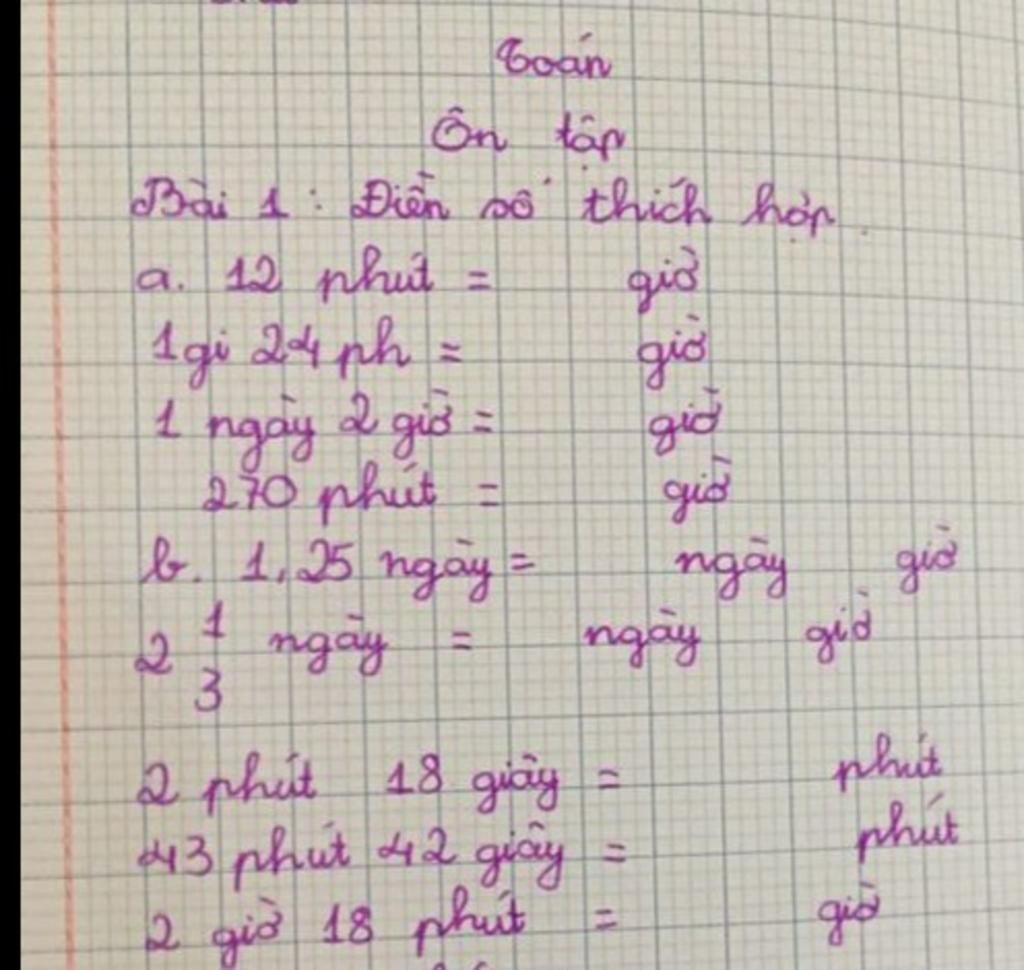 Toán
Ôn tập
Bài 1 : Điền số thích hợp.
a. 12 phút = giờ
1gi 24 ph = giờ
1 ngày 2 giờ = giờ
270 phút = giờ
b. 1,25 ngày = ngày giờ
2 1/3 ngày = ngày giờ
2 phút 18 giây = phút
43 phút 42 giây = phút
2 giờ 18 phút = giờ